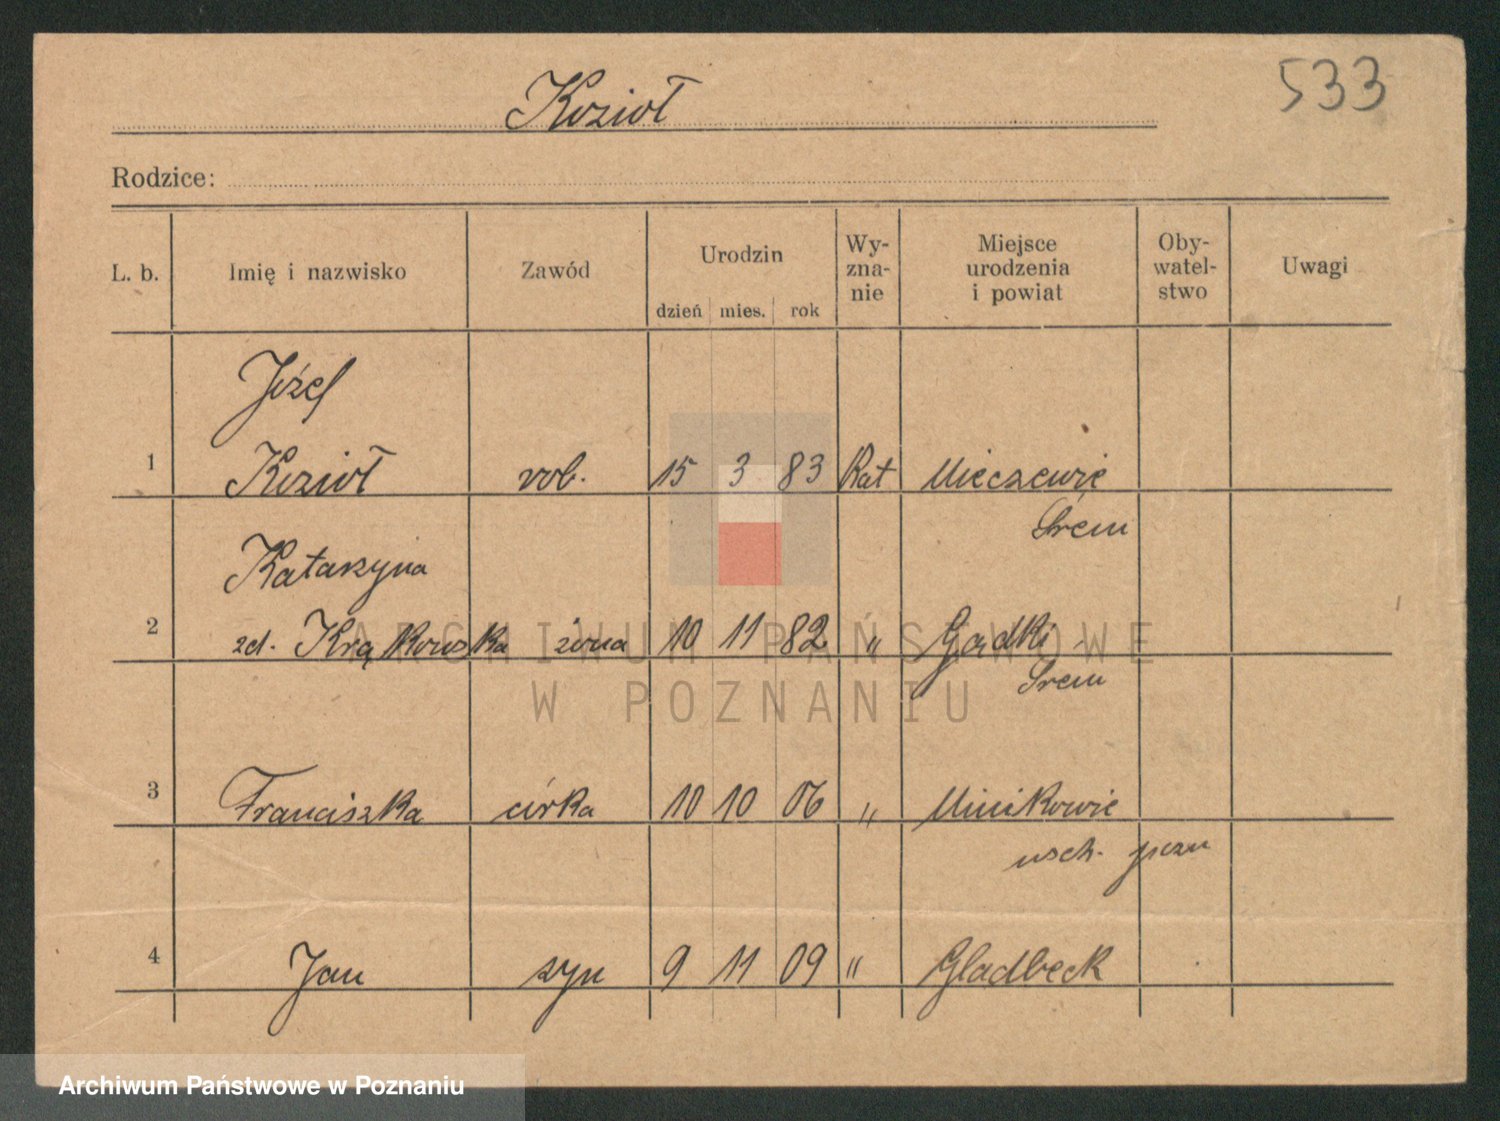 533
Kozioł
Rodzice:
L. b. Imię i nazwisko Zawód Urodzin dzień mies. rok Wy-zna-nie Miejsce urodzenia i powiat Oby-watel-stwo Uwagi
Józef
1 Kozioł rob. 15 3 83 Kat Mieczewie
Śrem
Katarzyna
2 zd. Krąkowska żona 10 11 82 " Gądki
Śrem
3 Franciszka córka 10 10 06 " Minikowie
wsch. pozn
4 Jan syn 9 11 09 " Gladbeck
ARCHIWUM PAŃSTWOWE
W POZNANIU
Archiwum Państwowe w Poznaniu